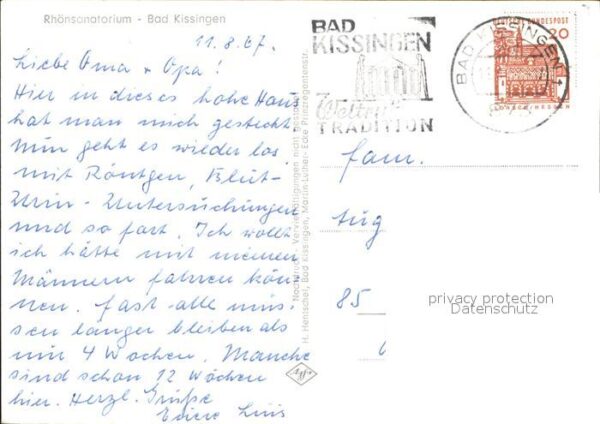 Rhönsanatorium - Bad Kissingen
11.8.67.
Liebe Oma + Opa!
Hier in dieses hohe Haus
hat man mich gesteckt.
Nun geht es wieder los
mit Röntgen, Blut-
Urin-Untersuchungen
und so fort. Ich wollt
ich hätte mit meinen
Männern fahren kön-
nen. Fast alle müs-
sen länger bleiben als
nur 4 Wochen. Manche
sind schon 12 Wochen
hier. Herzl. Grüße
Eure
Nachdruck - Vervielfältigungen nicht gestattet
H. Hentschel, Bad Kissingen, Martin-Luther-, Ecke Prinzregentenstr.
Agfa
BAD
KISSINGEN
TRADITION
BAD KISSINGEN
DEUTSCHE BUNDESPOST
20
Fam.
Aug
85
privacy protection
Datenschutz